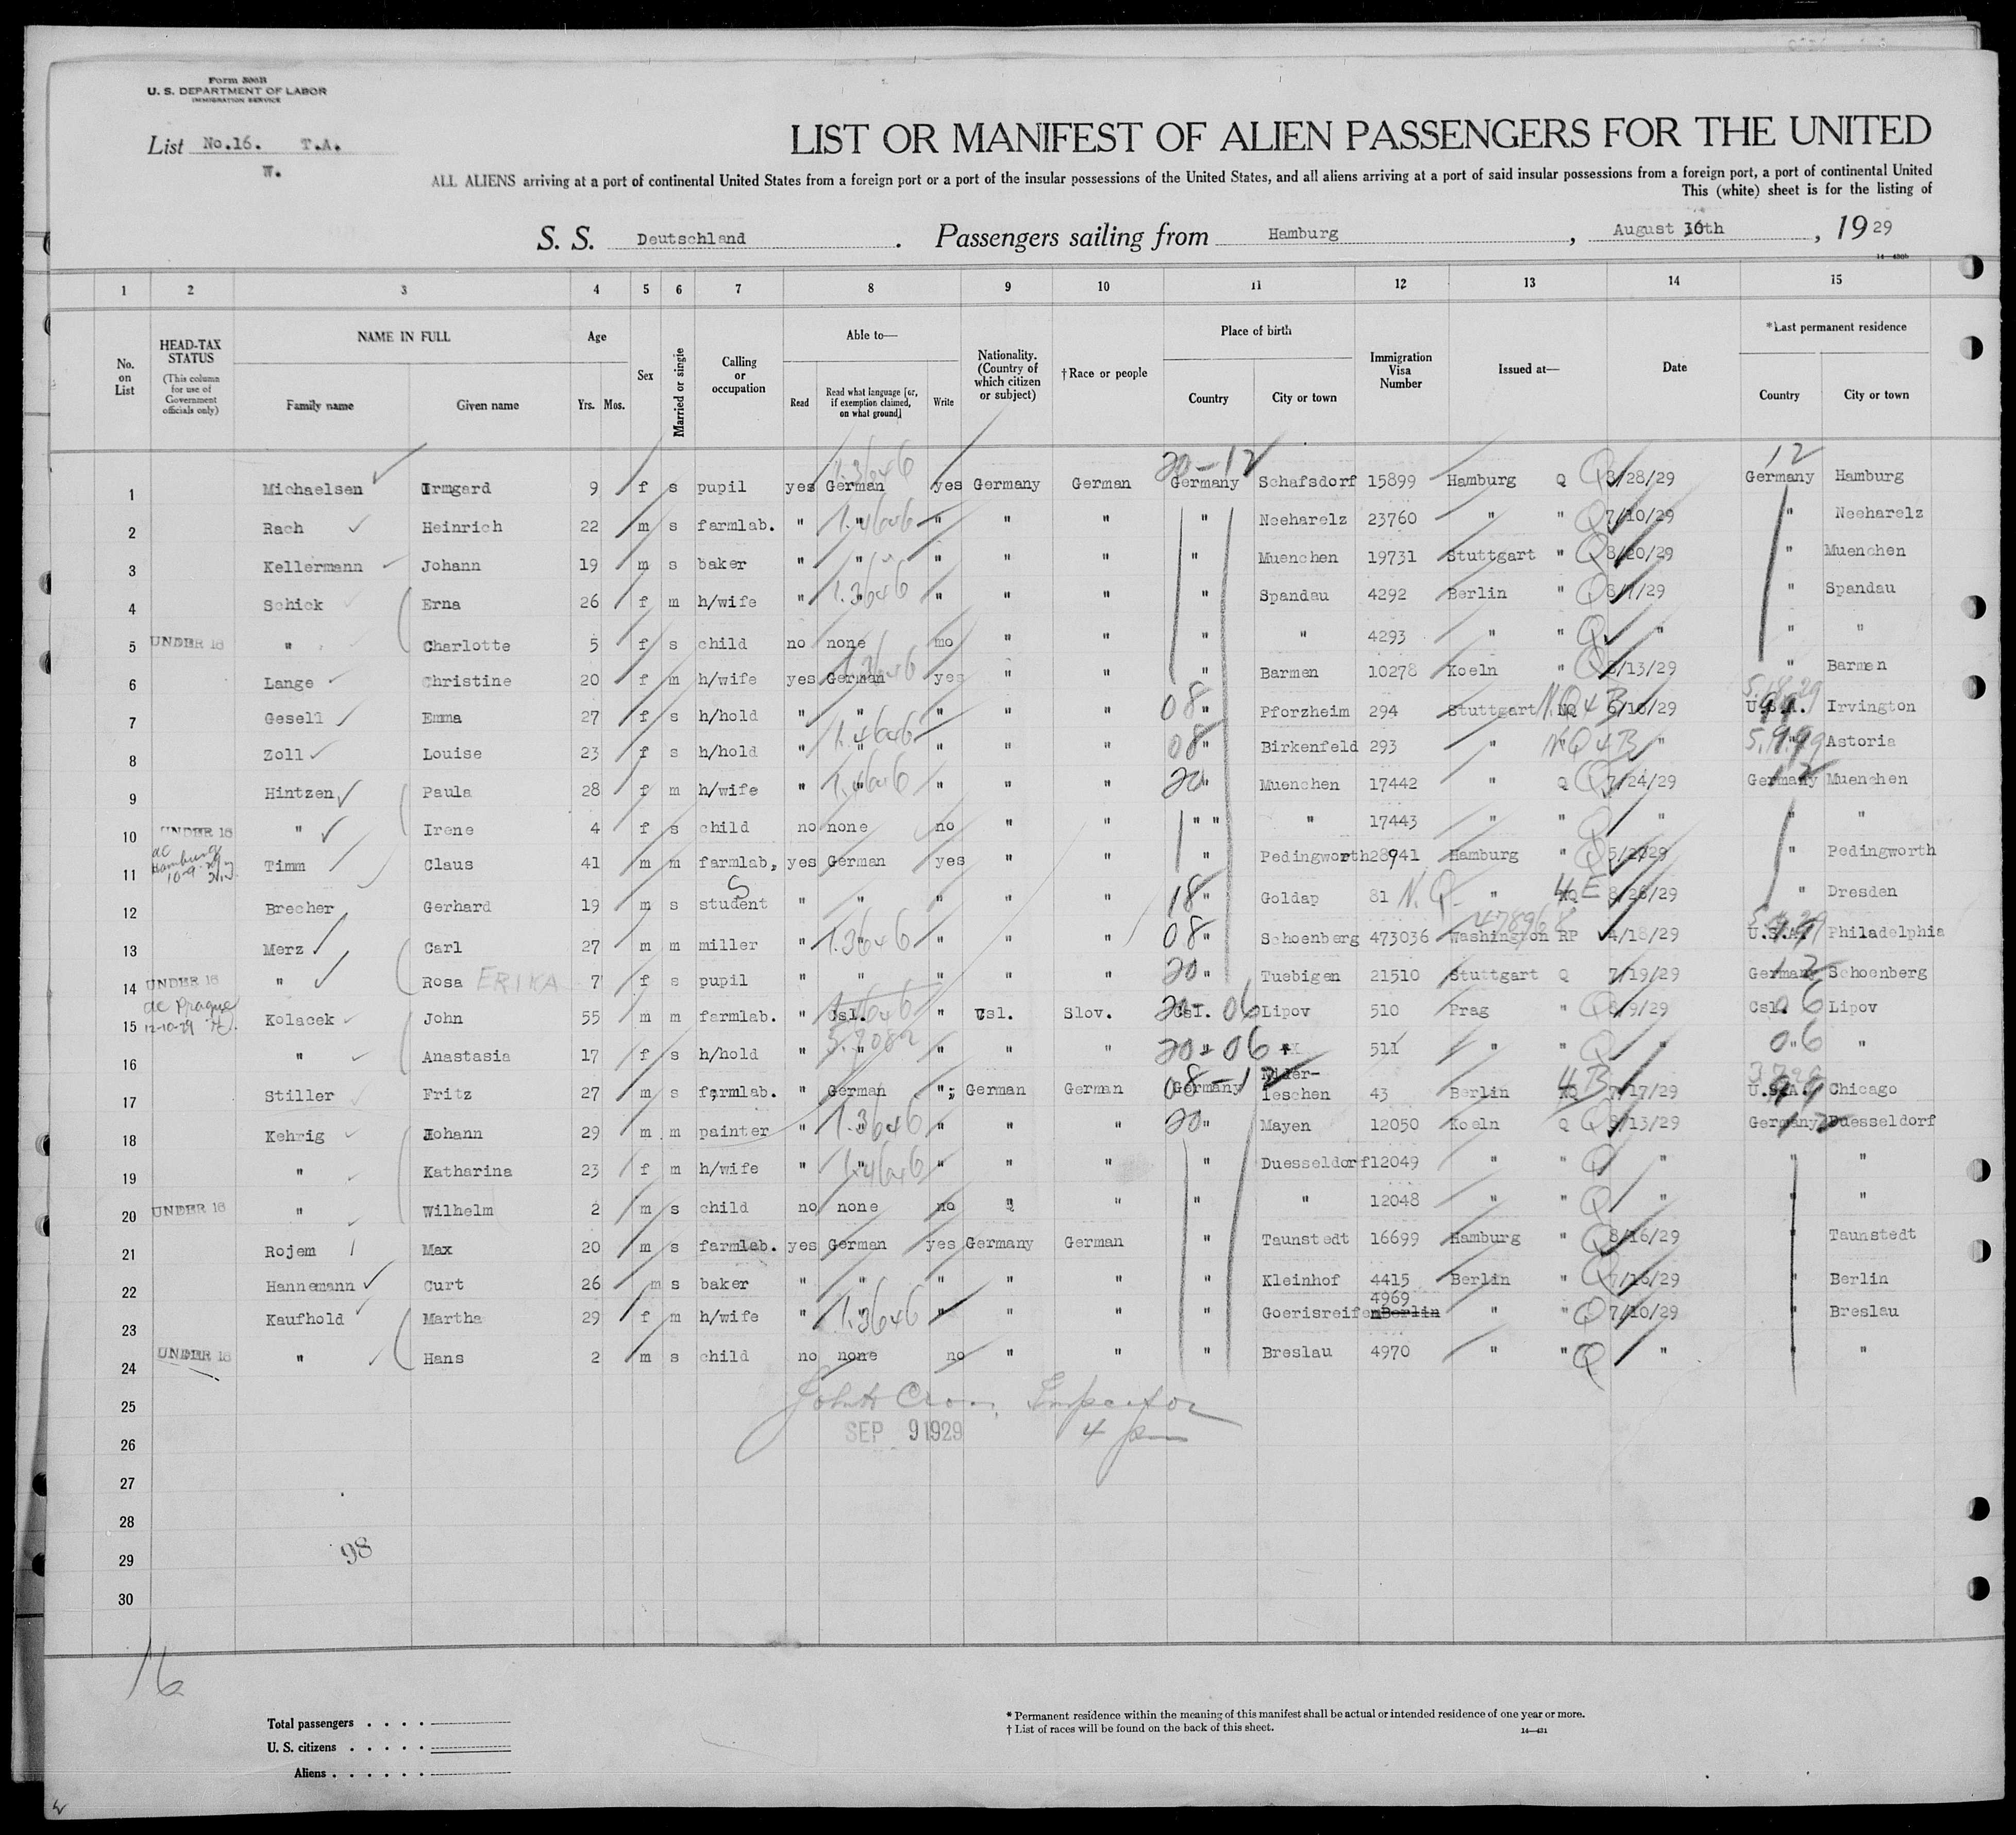 Form 500B
U. S. DEPARTMENT OF LABOR
IMMIGRATION SERVICE
List No.16. T.A.
W.
LIST OR MANIFEST OF ALIEN PASSENGERS FOR THE UNITED
ALL ALIENS arriving at a port of continental United States from a foreign port or a port of the insular possessions of the United States, and all aliens arriving at a port of said insular possessions from a foreign port, a port of continental United
This (white) sheet is for the listing of
S. S. Deutschland . Passengers sailing from Hamburg , August 30th , 19 29
14—430b
1 2 3 4 5 6 7 8 9 10 11 12 13 14 15
No. on List
HEAD-TAX STATUS (This column for use of Government officials only)
NAME IN FULL Family name Given name
Age Yrs. Mos.
Sex
Married or single
Calling or occupation
Able to— Read Read what language [or, if exemption claimed, on what ground] Write
Nationality. (Country of which citizen or subject)
†Race or people
Place of birth Country City or town
Immigration Visa Number
Issued at—
Date
*Last permanent residence Country City or town
20-12 12
1 Michaelsen Irmgard 9 f s pupil yes German yes Germany German Germany Schafsdorf 15899 Hamburg Q Q 8/28/29 Germany Hamburg
2 Rach Heinrich 22 m s farmlab. " " " " " " Neeharelz 23760 " " Q 7/10/29 " Neeharelz
3 Kellermann Johann 19 m s baker " " " " " " Muenchen 19731 Stuttgart " Q 8/20/29 " Muenchen
4 Schick Erna 26 f m h/wife " 1.3646 " " " " Spandau 4292 Berlin " Q 8/7/29 " Spandau
5 UNDER 16 " Charlotte 5 f s child no none mo " " " " 4293 " " Q " " "
6 Lange Christine 20 f m h/wife yes German yes " " " Barmen 10278 Koeln " Q 8/13/29 " Barmen
7 Gesell Emma 27 f s h/hold " " " " " 08 " Pforzheim 294 Stuttgart N.Q 4 B 6/10/29 U.S.A. Irvington
8 Zoll Louise 23 f s h/hold " 1.4646 " " " 08 " Birkenfeld 293 " N.Q 4 B " " Astoria
9 Hintzen Paula 28 f m h/wife " 1.4646 " " " 20 " Muenchen 17442 " Q Q 7/24/29 Germany 12 Muenchen
10 UNDER 16 " Irene 4 f s child no none no " " " " " 17443 " Q " " "
11 Hamburg 10-9-29 Timm Claus 41 m m farmlab, yes German yes " " " Pedingworth 28941 Hamburg " Q " Pedingworth
12 Brecher Gerhard 19 m s student " " " " " 18 " Goldap 81 N.Q. " 4E 8/26/29 " Dresden
13 Merz Carl 27 m m miller " 1.3646 " " " 08 " Schoenberg 473036 Washington RP 4/18/29 U.S.A. Philadelphia
14 UNDER 16 " Rosa ERIKA 7 f s pupil " " " " " 20 " Tuebigen 21510 Stuttgart Q 7/19/29 Germany 12 Schoenberg
15 dc Prague 12-10-29 Kolacek John 55 m m farmlab. " Csl. " Csl. Slov. Csl. 06 Lipov 510 Prag " Q 8/9/29 Csl. 06 Lipov
16 " Anastasia 17 f s h/hold " " " " " 20 - 06 511 " " Q " 06 "
17 Stiller Fritz 27 m s farmlab. " German " German German 08-12 Germany Nider-leschen 43 Berlin 4B 7/17/29 U.S.A. Chicago
18 Kehrig Johann 29 m m painter " 1.3646 " " " 20 " Mayen 12050 Koeln Q Q 8/13/29 Germany 12 Duesseldorf
19 " Katharina 23 f m h/wife " 1.4646 " " " " Duesseldorf 12049 " " Q " " "
20 UNDER 16 " Wilhelm 2 m s child no none no " " " " 12048 " " Q " " "
21 Rojem Max 20 m s farmlab. yes German yes Germany German " Taunstedt 16699 Hamburg " Q 8/16/29 " Taunstedt
22 Hannemann Curt 26 m s baker " " " " " " Kleinhof 4415 Berlin " Q 7/16/29 " Berlin
23 Kaufhold Martha 29 f m h/wife " 1.3646 " " " " Goerisreifen 4969 Berlin " " Q 7/10/29 " Breslau
24 UNDER 16 " Hans 2 m s child no none no " " " Breslau 4970 " " Q " " "
25 Inspector
26 SEP 9 1929 4 pm
27
28
29 98
30
16
Total passengers
U. S. citizens
Aliens
* Permanent residence within the meaning of this manifest shall be actual or intended residence of one year or more.
† List of races will be found on the back of this sheet.
14—431